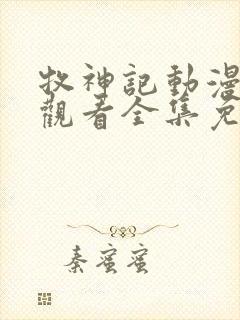 牧神記動漫
觀看全集免
秦蜜蜜